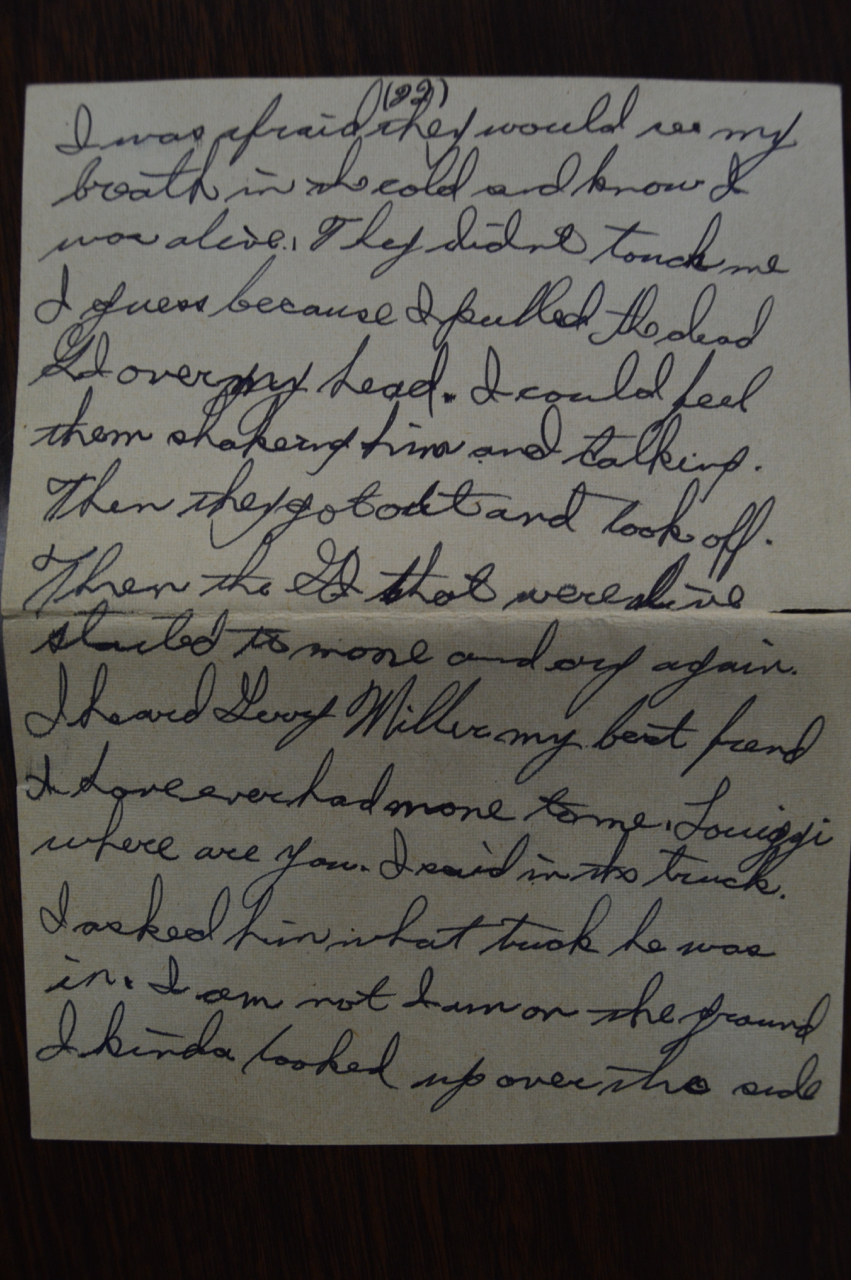 (22)
I was afraid they would see my
breath in the cold and know I
was alive. They didnt touch me
I guess because I pulled the dead
GI over my head. I could feel
them shakeing him and talking.
Then they got out and took off.
Then the GI that were alive
started to mone and cry again.
I heard Gerry Miller my best frend
I have ever had mone to me. Louiggi
where are you. I said in the truck.
I asked him what truck he was
in. I am not I am on the ground
I kinda looked up over the side